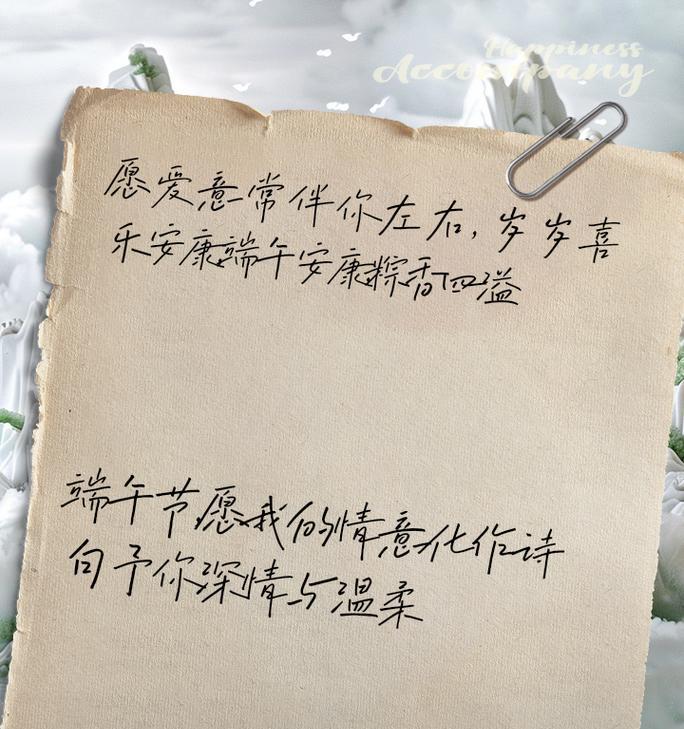 Happiness
Accompany
愿爱意常伴你左右,岁岁喜
乐安康端午安康粽香四溢
端午节,愿我的情意化作诗
句予你深情与温柔